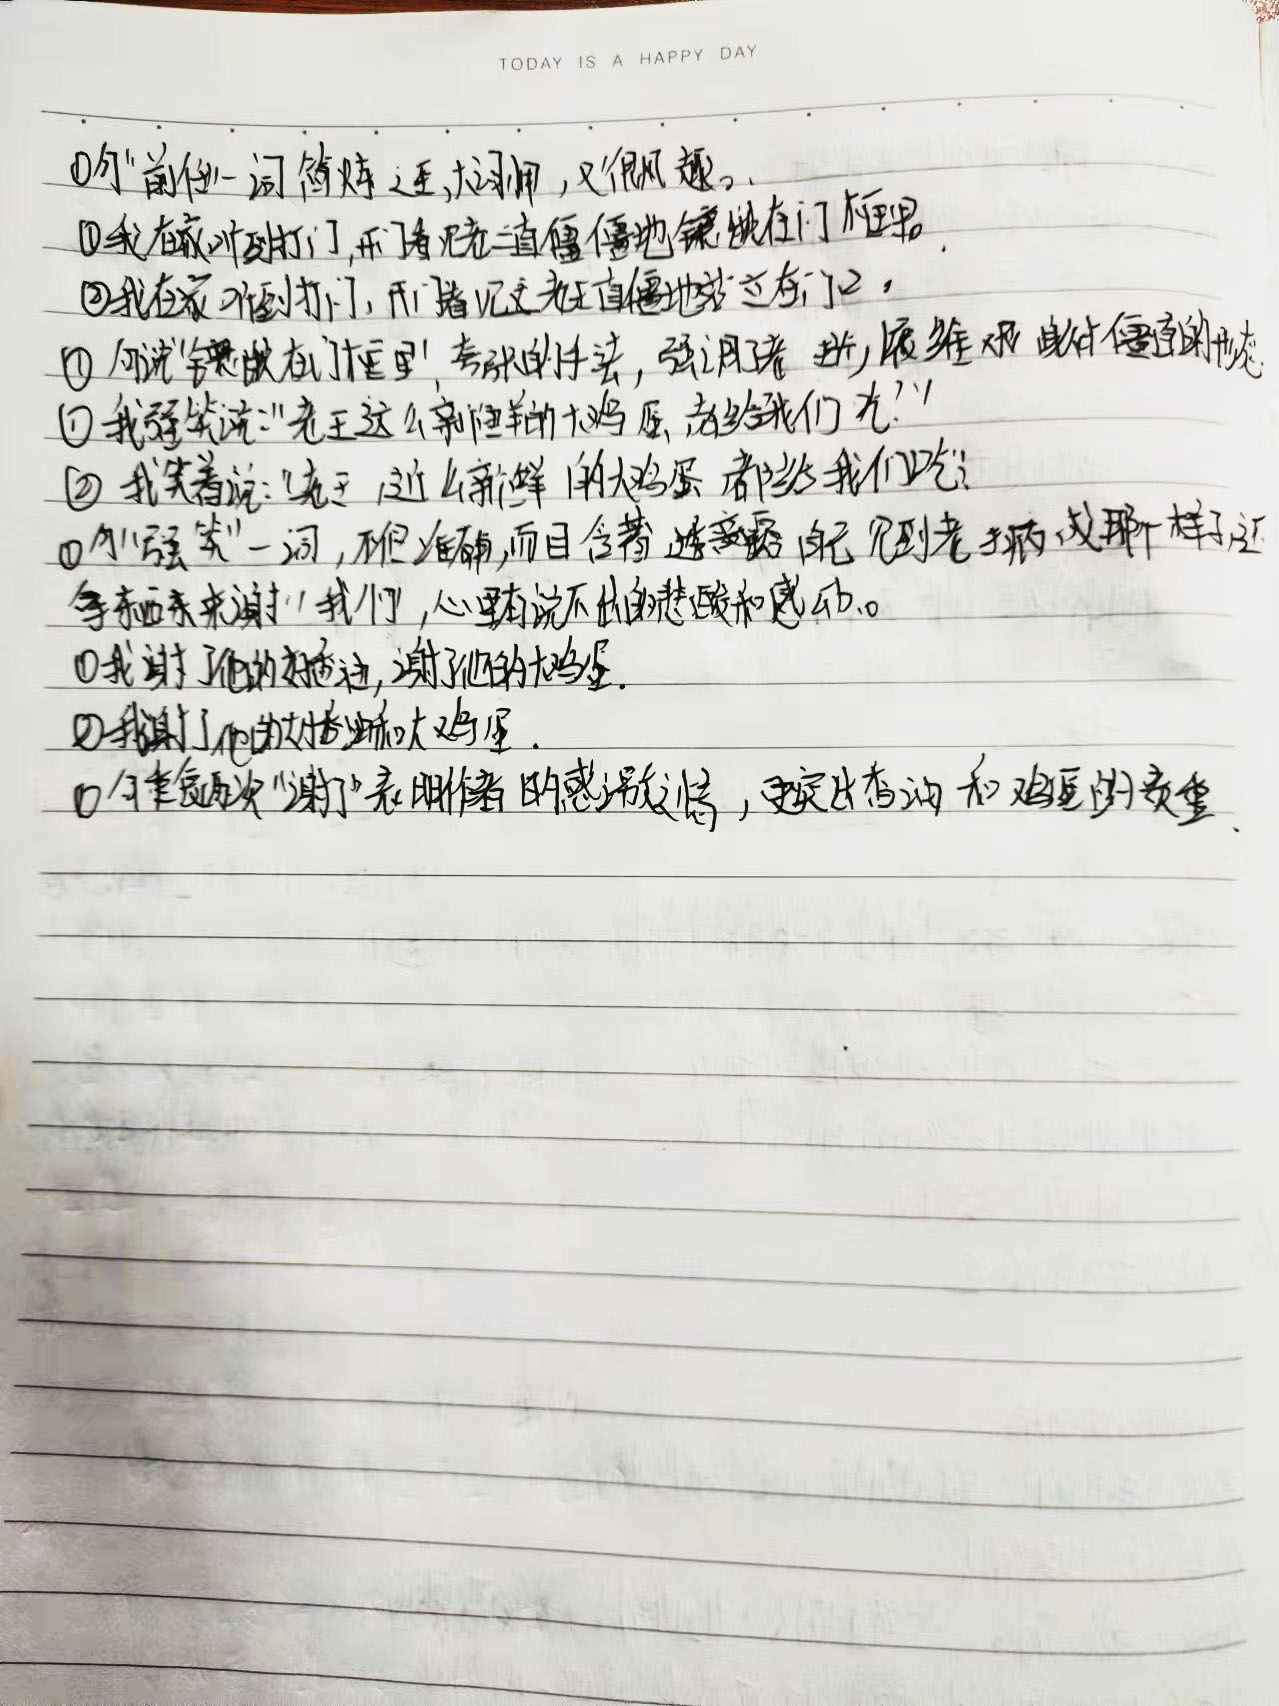 TODAY IS A HAPPY DAY
①句"前任"一词简炼之至,大词小用,又很风趣。
①我在家听到打门,开门看见老王直僵僵地镶嵌在门框里。
②我在家听到打门,开门看见老王直僵地站立在门口。
①句说"镶嵌在门框里",夸张的手法,强调了老 身体僵直的形态
①我强笑说:"老王这么新鲜的大鸡蛋,都给我们吃?"
②我笑着说:"老王,这么新鲜的大鸡蛋都给我们吃?
①句"强笑"一词,不但准确,而且含蓄 自己见到老王病成那个样子,还
拿东西来谢"我们",心里有说不出的悲酸和感动。
①我谢了他的好香油,谢了他的大鸡蛋.
②我谢了他的好香油和大鸡蛋.
①句重复两次"谢了"表明作者的感激之情,更突出香油和鸡蛋的贵重.